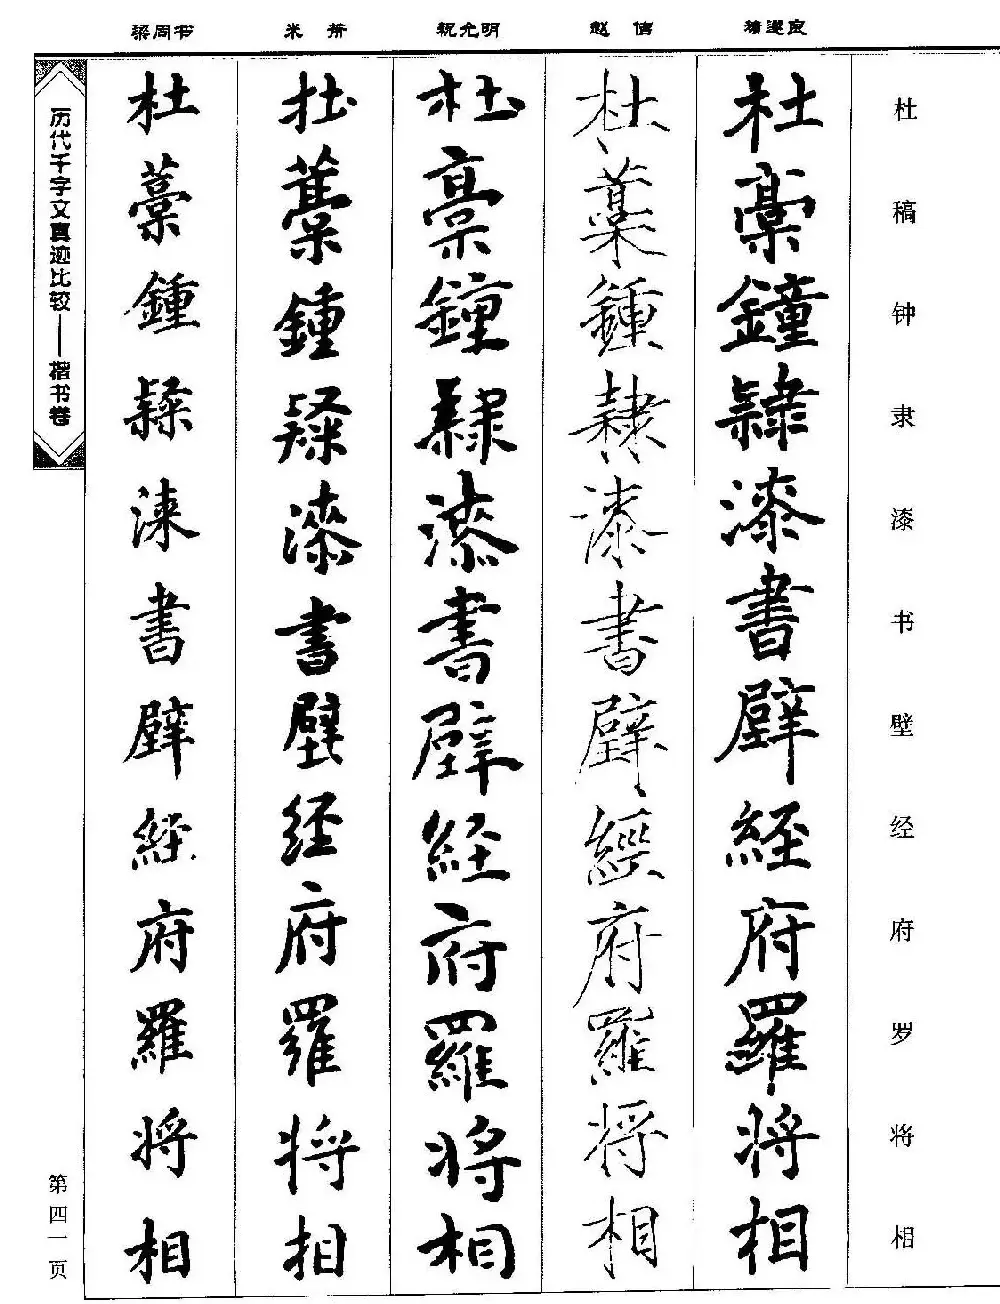 梁周书 米芾 祝允明 赵佶 褚遂良
杜稿钟隶漆书壁经府罗将相
杜稾鐘隸漆書壁経府羅将相
杜藁鍾隸漆書壁經府羅将相
杜稾鐘隸漆書壁経府羅将相
杜藁鍾隸漆書壁経府羅将相
杜藁鍾隸漆書壁経府羅将相
历代千字文真迹比较——楷书卷
第四一页